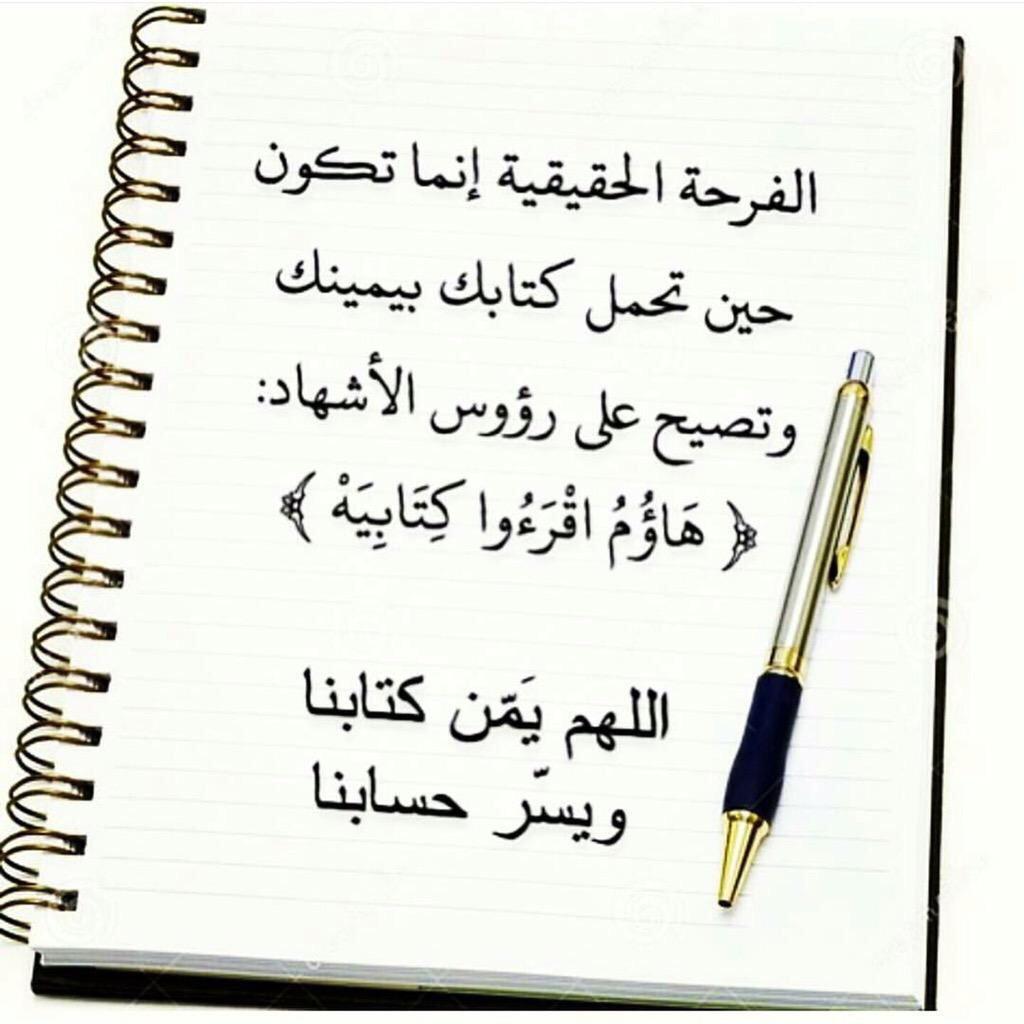 الفرحة الحقيقية إنما تكون
حين تحمل كتابك بيمينك
وتصيح على رؤوس الأشهاد:
﴿ هَاؤُمُ اقْرَءُوا كِتَابِيَهْ ﴾
اللهم يَمّن كتابنا
ويسّر حسابنا